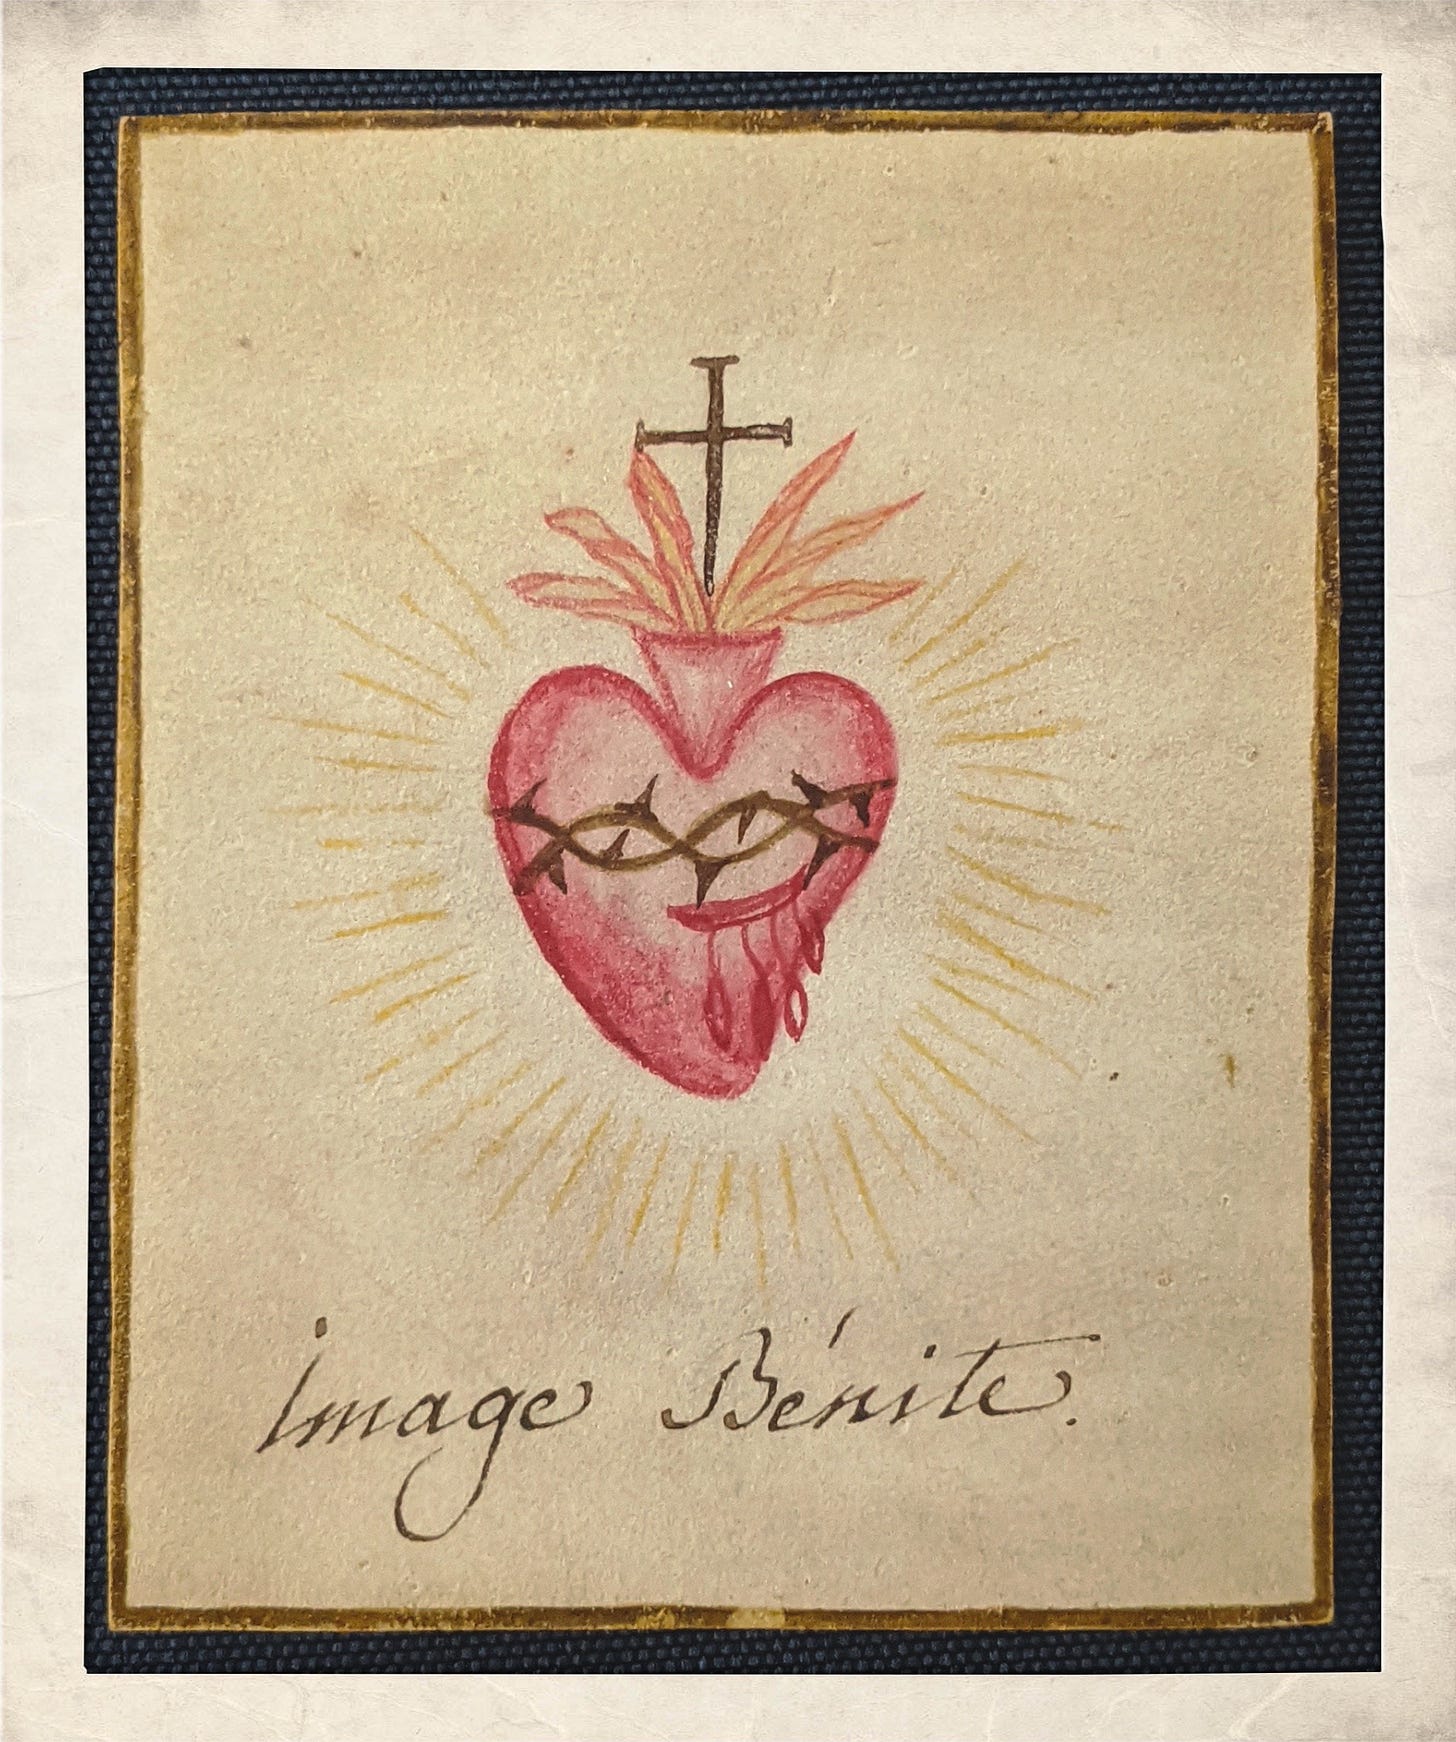 Image Bénite.